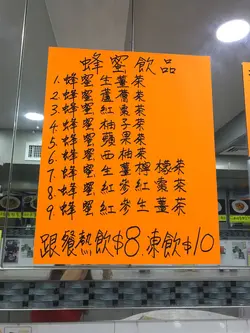 蜂蜜飲品
1. 蜂蜜生薑茶
2. 蜂蜜蘆薈茶
3. 蜂蜜紅棗茶
4. 蜂蜜柚子茶
5. 蜂蜜蘋果茶
6. 蜂蜜西柚茶
7. 蜂蜜生薑檸檬茶
8. 蜂蜜紅參紅棗茶
9. 蜂蜜紅參生薑茶
跟餐熱飲$8.凍飲$10